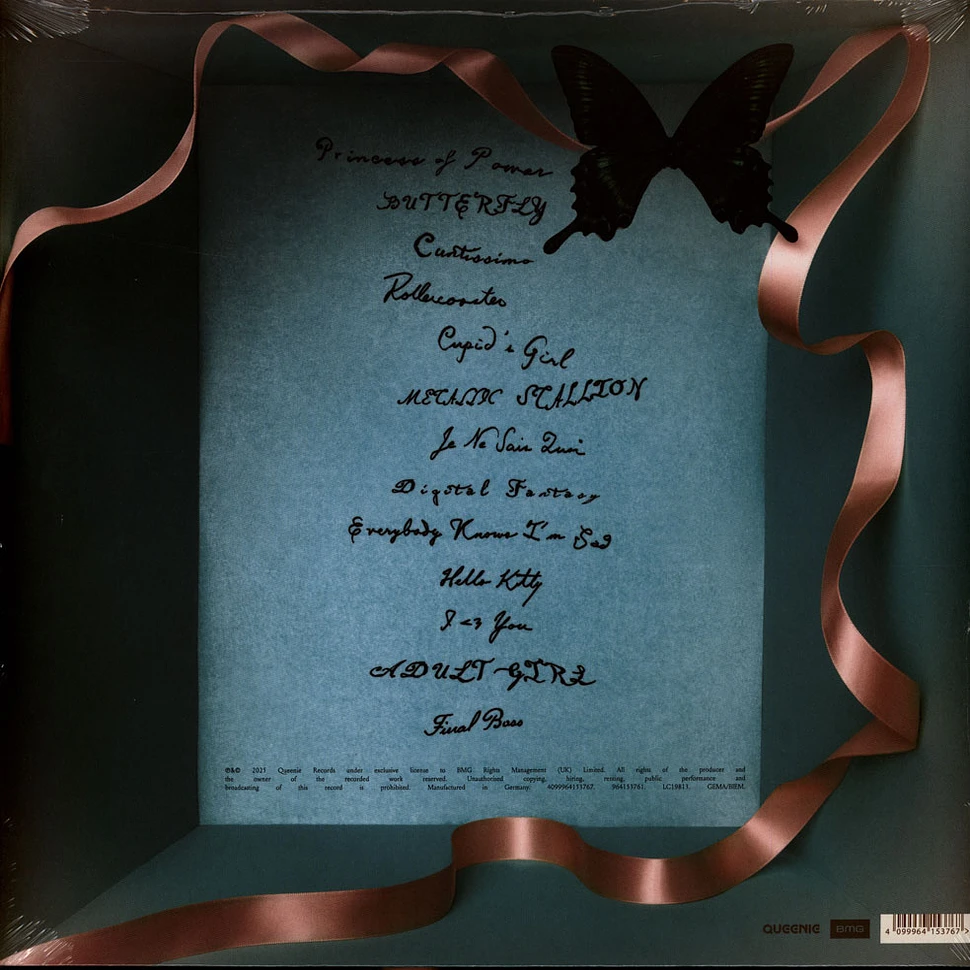 Princess of Power
BUTTERFLY
Cuntissimo
Rollercoaster
Cupid's Girl
METALLIC STALLION
Je Ne Sais Quoi
Digital Fantasy
Everybody Knows I'm Sad
Hello Kitty
I <3 You
ADULT GIRL
Final Boss
℗&© 2025 Queenie Records under exclusive license to BMG Rights Management (UK) Limited. All rights of the producer and
the owner of the recorded work reserved. Unauthorised copying, hiring, renting, public performance and
broadcasting of this record is prohibited. Manufactured in Germany. 4099964153767. 964153761. LC19813. GEMA/BIEM.
QUEENIE BMG 4 099964 153767 >